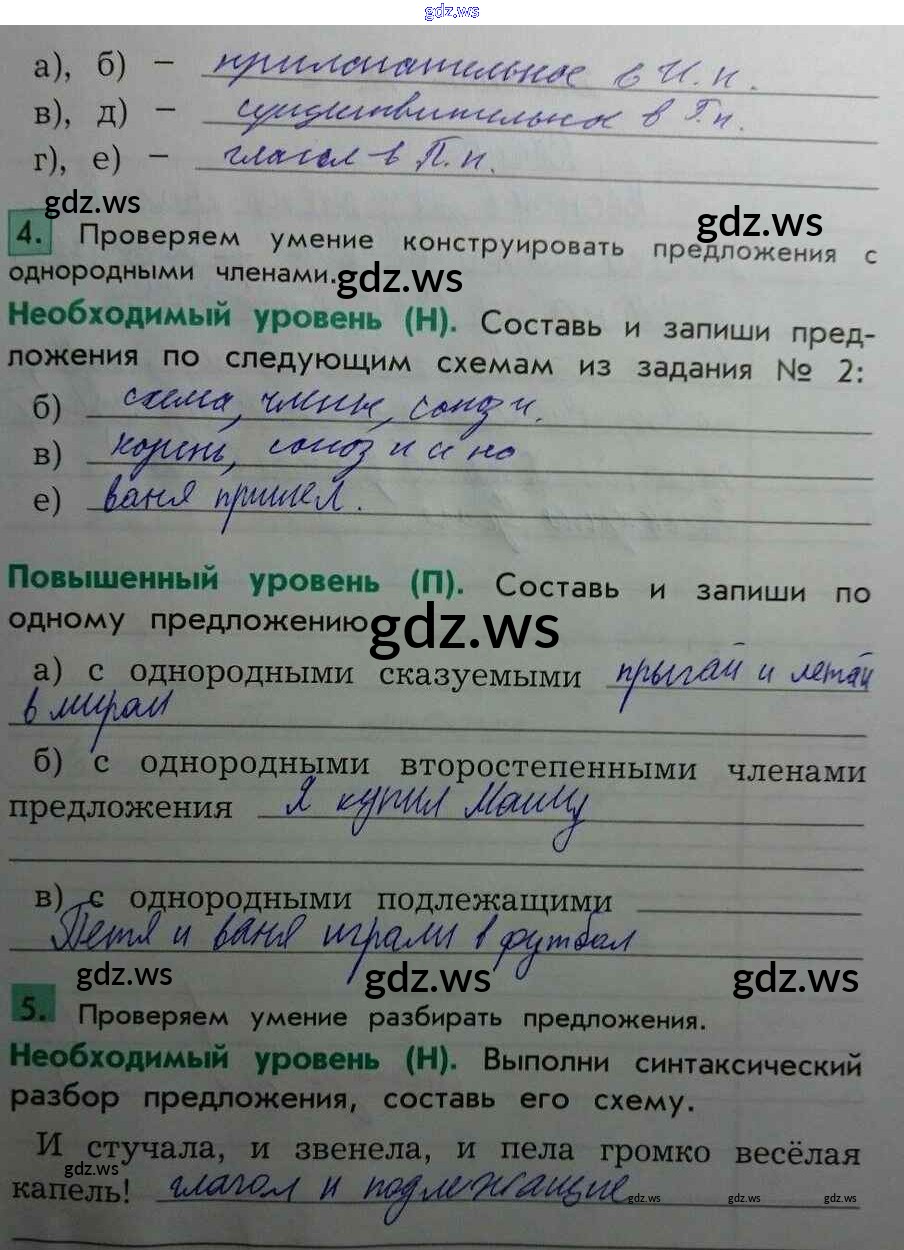 gdz.ws
а), б) – прилагательное в И.п.
в), д) – существительное в Т.п.
г), е) – глагол в П.п.
gdz.ws
gdz.ws
4. Проверяем умение конструировать предложения с
однородными членами.
gdz.ws
Необходимый уровень (Н). Составь и запиши пред-
ложения по следующим схемам из задания № 2:
б) схема, члены, союз и.
в) корень, союз и и но
е) ваня пришел.
Повышенный уровень (П). Составь и запиши по
одному предложению
gdz.ws
а) с однородными сказуемыми прыгай и летай
в мирам
б) с однородными второстепенными членами
предложения Я купил Машу
в) с однородными подлежащими
Петя и ваня играли в футбол
gdz.ws gdz.ws gdz.ws
5. Проверяем умение разбирать предложения.
Необходимый уровень (Н). Выполни синтаксический
разбор предложения, составь его схему.
И стучала, и звенела, и пела громко весёлая
gdz.ws
капель! глагол и подлежащие
gdz.ws gdz.ws gdz.ws